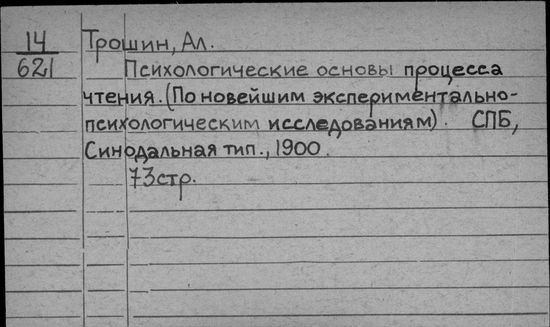 14
621
Трошин, Ал.
Психологические основы процесса
чтения. (По новейшим экспериментально-
психологическим исследованиям). СПБ,
Синодальная тип., 1900.
73 стр.